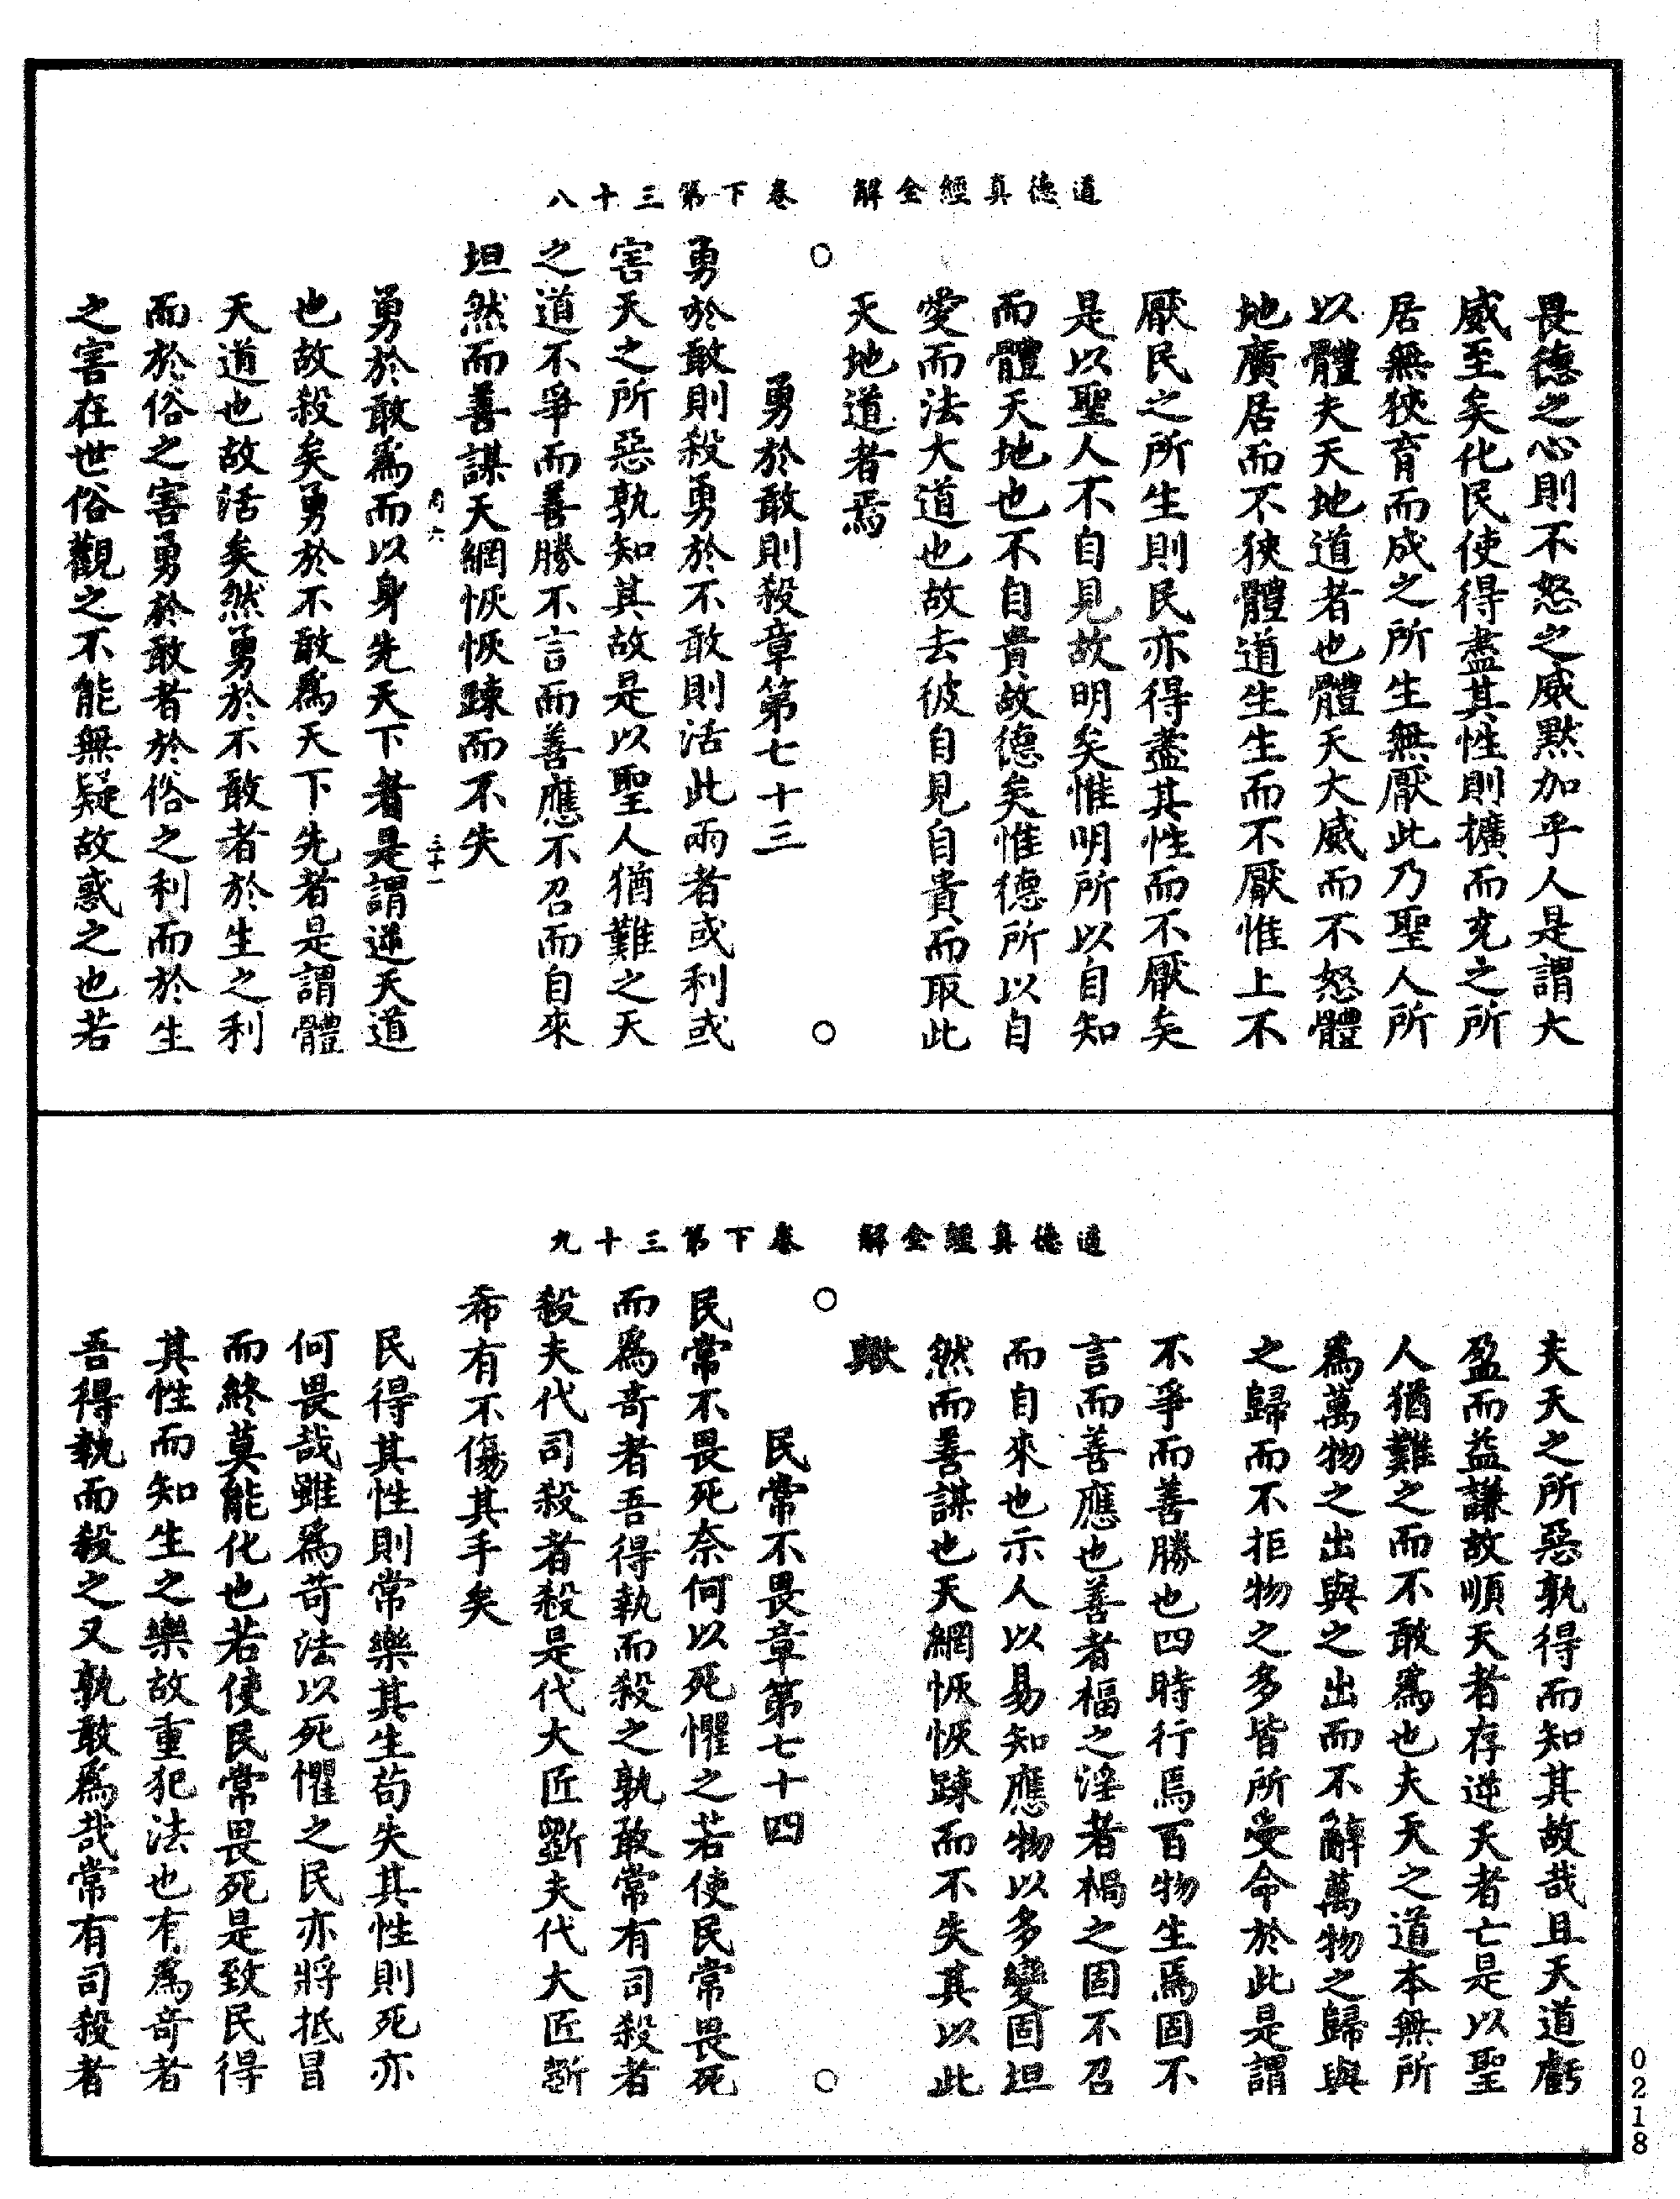 道德真經全解　卷下第三十八
畏德之心則不怒之威黙加乎人是謂大
威至矣化民使得盡其性則擴而充之所
居無狹育而成之所生無厭此乃聖人所
以體夫天地道者也體天大威而不怒體
地廣居而不狹體道生生而不厭惟上不
厭民之所生則民亦得盡其性而不厭矣
是以聖人不自見故明矣惟明所以自知
而體天地也不自貴故德矣惟德所以自
愛而法大道也故去彼自見自貴而取此
天地道者焉
○　○
勇於敢則殺章第七十三
勇於敢則殺勇於不敢則活此兩者或利或
害天之所惡孰知其故是以聖人猶難之天
之道不爭而善勝不言而善應不召而自來
坦然而善謀天網恢恢踈而不失
六　三十一
勇於敢爲而以身先天下者是謂逆天道
也故殺矣勇於不敢爲天下先者是謂體
天道也故活矣然勇於不敢者於生之利
而於俗之害勇於敢者於俗之利而於生
之害在世俗觀之不能無疑故惑之也若
道德真經全解　卷下第三十九
夫天之所惡孰得而知其故哉且天道虧
盈而益謙故順天者存逆天者亡是以聖
人猶難之而不敢爲也夫天之道本無所
爲萬物之出與之出而不辭萬物之歸與
之歸而不拒物之多皆所受命於此是謂
不爭而善勝也四時行焉百物生焉固不
言而善應也善者福之淫者禍之固不召
而自來也示人以易知應物以多變固坦
然而善謀也天網恢恢踈而不失其以此
歟
○　○
民常不畏章第七十四
民常不畏死奈何以死懼之若使民常畏死
而爲奇者吾得執而殺之孰敢常有司殺者
殺夫代司殺者殺是代大匠斲夫代大匠斲
希有不傷其手矣
民得其性則常樂其生苟失其性則死亦
何畏哉雖爲苛法以死懼之民亦將抵冒
而終莫能化也若使民常畏死是致民得
其性而知生之樂故重犯法也有爲奇者
吾得執而殺之又孰敢爲哉常有司殺者
0218